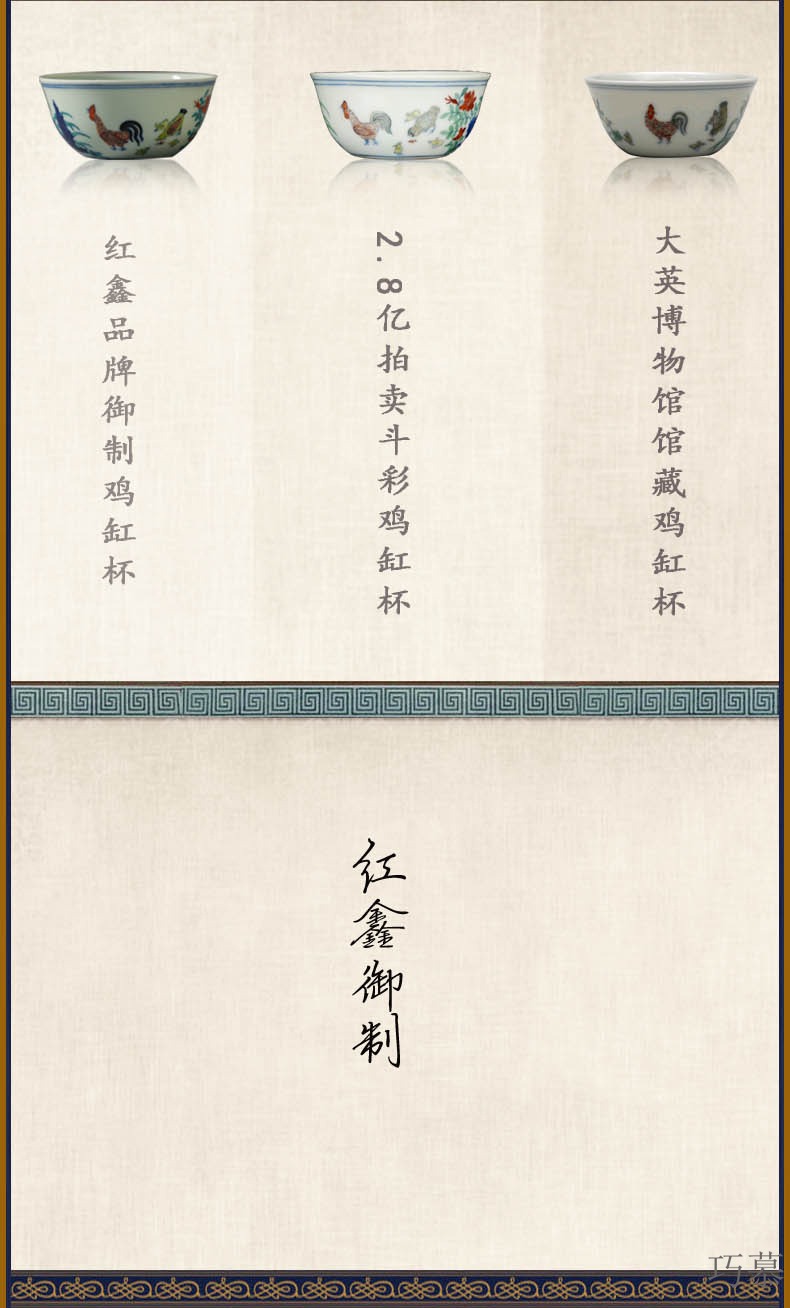 红鑫品牌御制鸡缸杯
2.8亿拍卖斗彩鸡缸杯
大英博物馆馆藏鸡缸杯
红鑫御制
巧慕